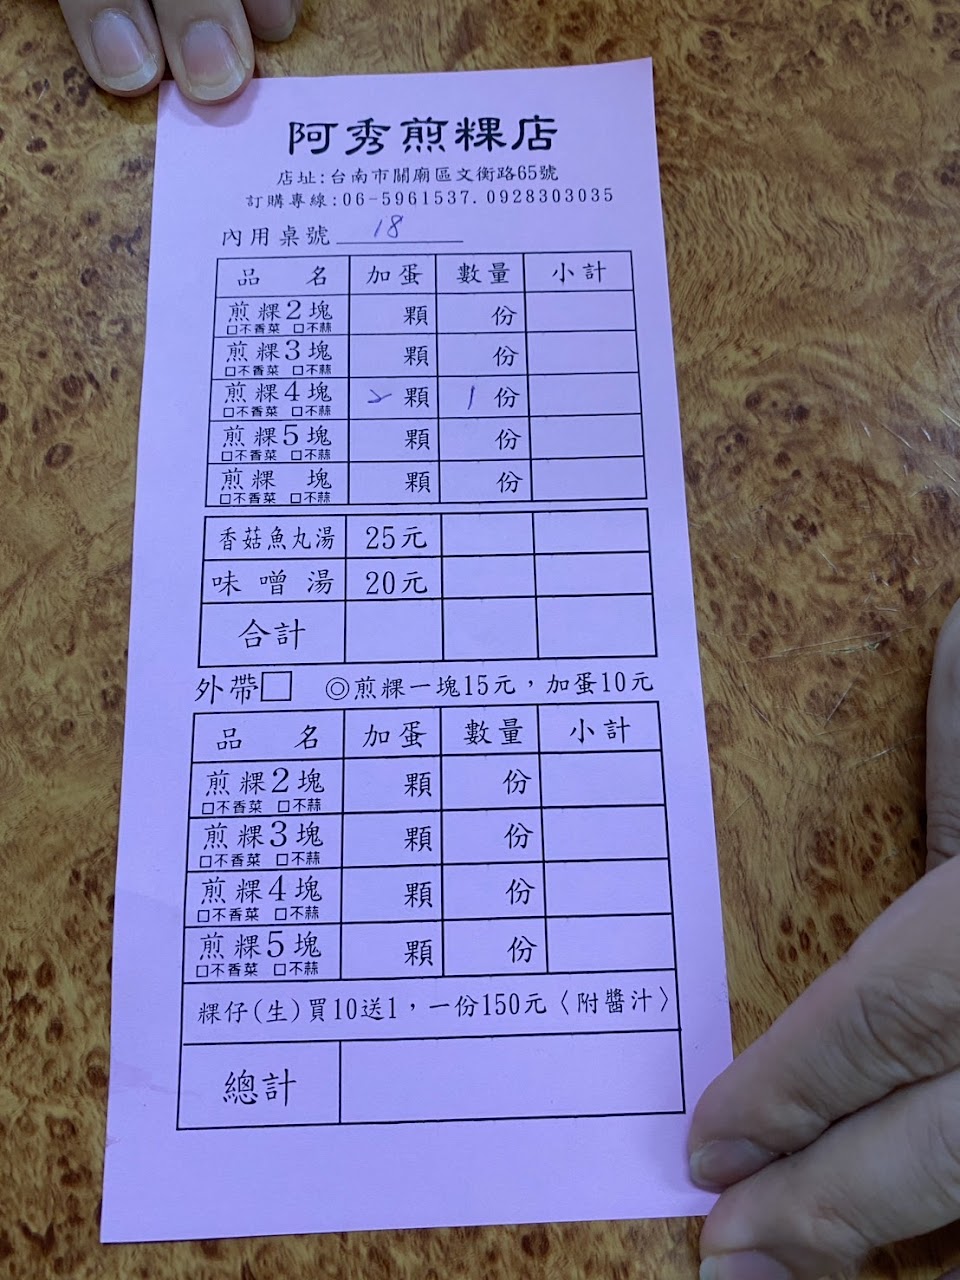 阿秀煎粿店
店址:台南市關廟區文衡路65號
訂購專線:06-5961537.0928303035
內用桌號 18
品 名 加蛋 數量 小計
煎粿2塊 顆 份
□不香菜 □不蒜
煎粿3塊 顆 份
□不香菜 □不蒜
煎粿4塊 2 顆 1 份
□不香菜 □不蒜
煎粿5塊 顆 份
□不香菜 □不蒜
煎粿 塊 顆 份
□不香菜 □不蒜
香菇魚丸湯 25元
味噌湯 20元
合計
外帶□ ◎煎粿一塊15元，加蛋10元
品 名 加蛋 數量 小計
煎粿2塊 顆 份
□不香菜 □不蒜
煎粿3塊 顆 份
□不香菜 □不蒜
煎粿4塊 顆 份
□不香菜 □不蒜
煎粿5塊 顆 份
□不香菜 □不蒜
粿仔(生)買10送1，一份150元〈附醬汁〉
總計